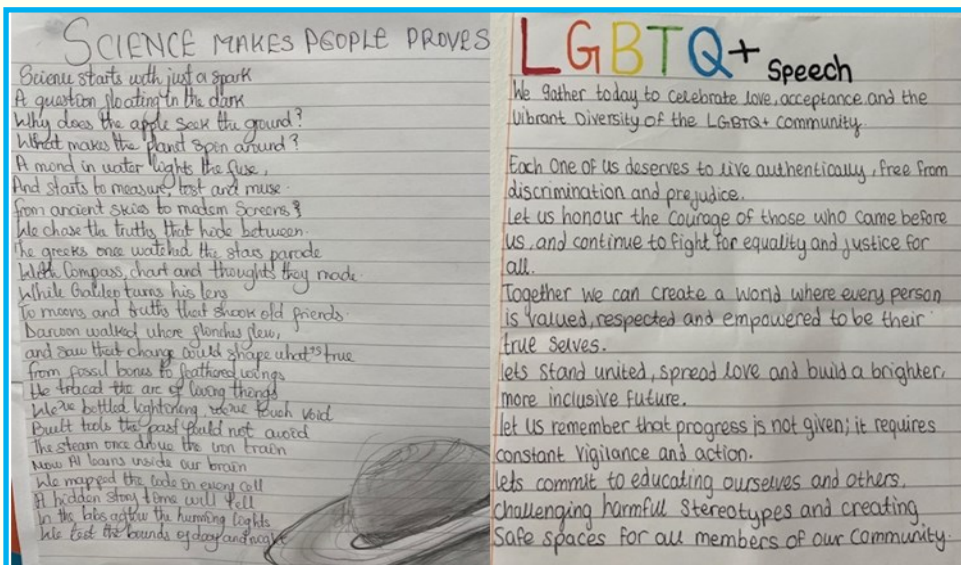 SCIENCE MAKES PEOPLE PROVES
Science starts with just a spark
A question floating in the dark
Why does the apple seek the ground?
What makes the planet spin around?
A mond in water lights the fuse,
And starts to measure, test and muse.
from ancient skies to modern Screens
We chase the truths that hide between.
The greeks once watched the stars parade
With Compass, chart and thoughts they made.
While Galileo turns his lens
To moons and truths that shook old friends.
Darwin walked where flew,
and saw that change could shape what's true
from fossil bones to feathered wings
He traced the arc of living things
We've bottled lightening, we've touch void
Built tools the past could not avoid
The steam once drove the iron train
Now AI learns inside our brain
We mapped the code in every cell
A hidden story time will tell
In the labs aglow the humming lights
We test the bounds of day and night
LGBTQ+ Speech
We gather today to celebrate love, acceptance and the
vibrant Diversity of the LGBTQ+ community.
Each one of us deserves to live authentically, free from
discrimination and prejudice.
Let us honour the courage of those who came before
us, and continue to fight for equality and justice for
all.
Together we can create a world where every person
is valued, respected and empowered to be their
true selves.
lets stand united, spread love and build a brighter,
more inclusive future.
let us remember that progress is not given; it requires
constant vigilance and action.
lets commit to educating ourselves and others,
challenging harmful stereotypes and creating
safe spaces for all members of our community.